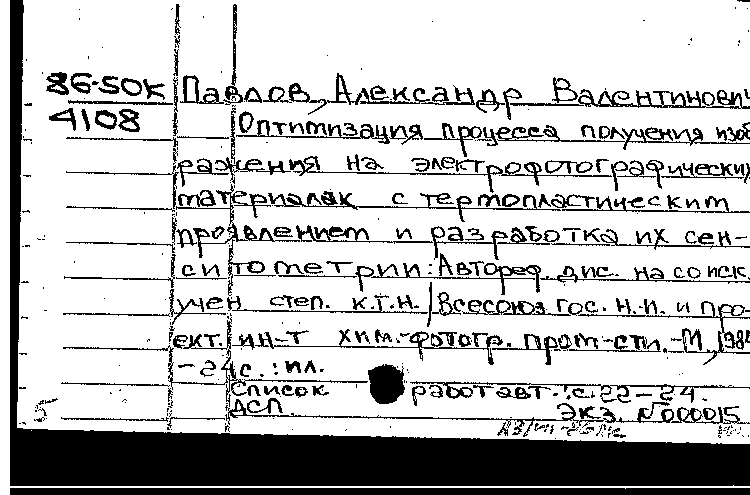 86-50К Павлов, Александр Валентинович
4108 Оптимизация процесса получения изоб
ражения на электрофотографических
материалах с термопластическим
проявлением и разработка их сен-
ситометрии: Автореф. дис. на соиск.
учен. степ. к.т.н. / Всесоюз. гос. н.-и. и про-
ект. ин-т хим.-фотогр. пром-сти. -М., 198
-24с. : ил.
Список работ авт.: с. 22-24.
ДСП Экз. №000015
5